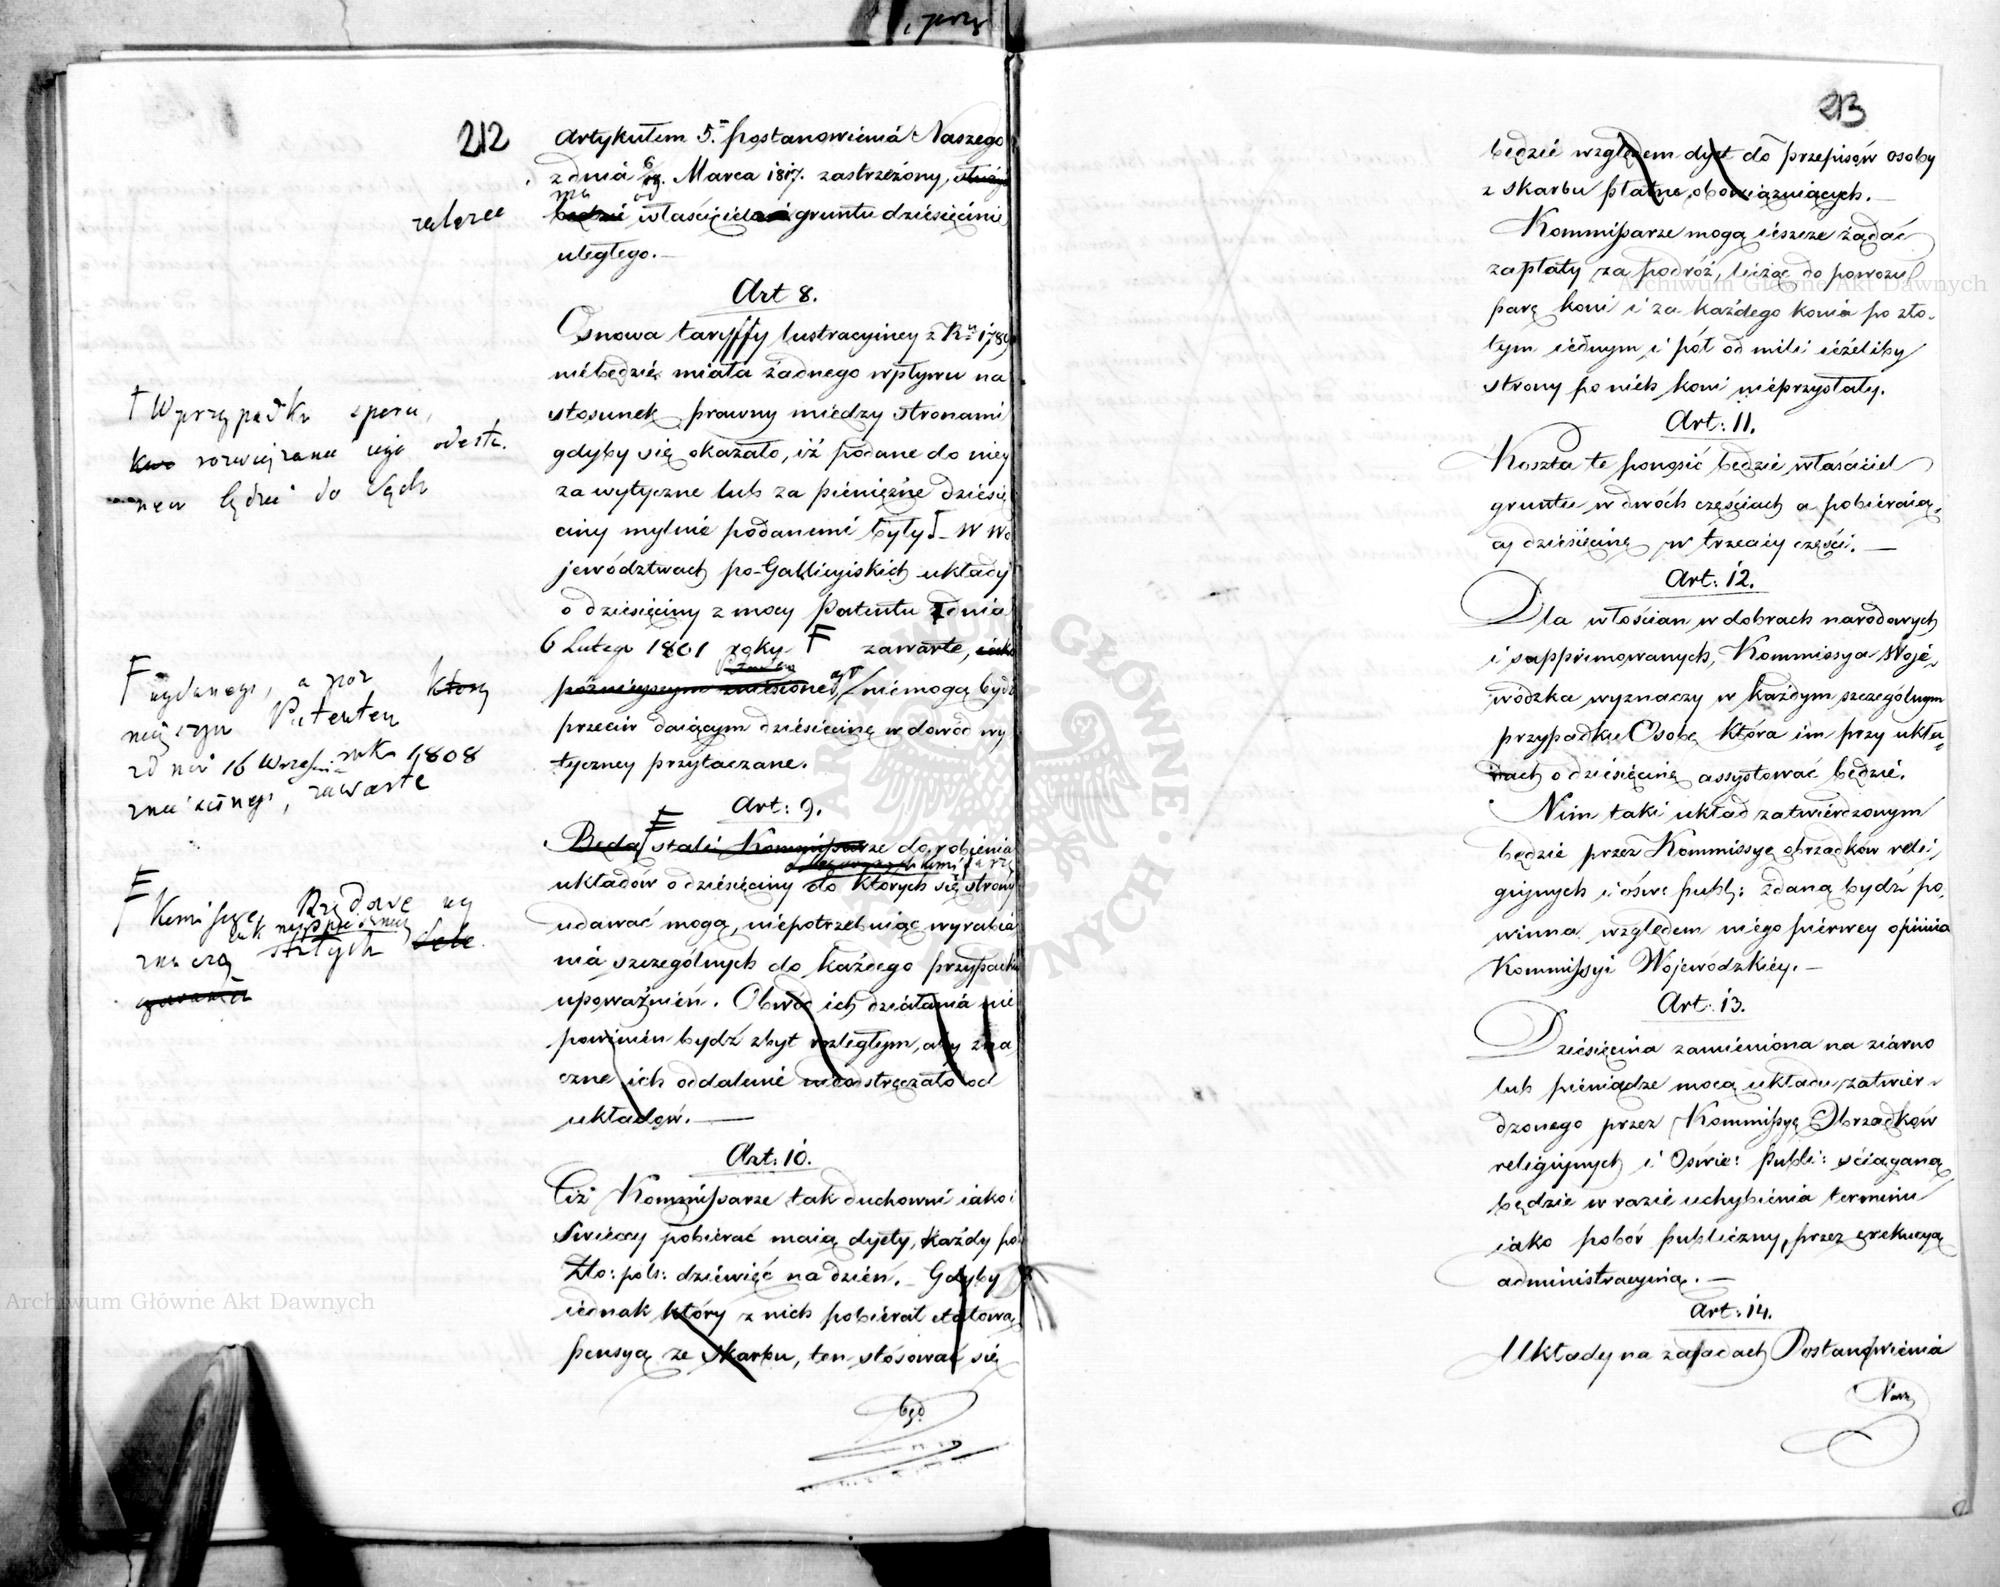 , przy
212
Artykułem 5. postanowienia Naszego
z dnia 6/18. Marca 1817. zastrzeżony, służyć
ma od
będzie właściciela gruntu dziesięcinie
zależec
uległego.—
Art 8.
Osnowa taryffy lustracyiney z Ru 1789
niebędzie miała żadnego wpływu na
stosunek prawny miedzy stronami
gdyby się okazało, iż podane do niey
za wytyczne lub za pieniężne dziesię
ciny mylnie podanemi były – W Wo
jewództwach po-Gallicyiskich układy
o dziesięciny z mocy Patentu z dnia
6 Lutego 1801 roku F zawarte, iako
późnieyszym zniesione niemogą bydź
przeciw daiącym dziesięcinę w dowód wy
tyczney przytaczane.
† W przypadku sporu,
rozwiązanie iego odesła
nem będzie do Sądu
F wydanego, a póz który
nieyszym Patentem
z dnia 16 Września roku 1808
znieśionego, zawarte
Art: 9.
Będą stali Kommissarze do robienia
układów o dziesięciny do których się strony
udawać mogą, niepotrzebuiąc wyrabia
nia szczególnych do każdego przypadku
upoważnień. Obwód ich działania nie
powinien bydź zbyt rozległym, aby zna
czne ich oddalenie nieodstręczało od
układów.—
F Komissye Rządowe wy
jak nayspieszniey
znaczą stałych Dele
Art: 10.
Ciż Kommissarze tak duchowni iako i
Swieccy pobierać maią dyety, każdy po
Zło: pols: dziewięć na dzień.– Gdyby
iednak który z nich pobierał etatową
pensyą ze skarbu, ten stósować się
będ
213
będzie względem dyet do przepisów osoby
z skarbu płatne obowiązuiących.—
Kommissarze mogą ieszcze żądać
zapłaty za podróż, licząc do powozu
parę koni i za każdego konia po zło-
tym iednym i pół od mili ieżeliby
strony po nich koni nieprzysłały.
Art: 11.
Koszta te ponosić będzie właściciel
gruntu w dwóch częściach a pobieraią,
cy dziesięcinę w trzeciey części.—
Art: 12.
Dla włościan w dobrach narodowych
i suppremowanych, Kommissya Woje-
wódzka wyznaczy w każdym szczególnym
przypadku Osobę która im przy ukła-
dach o dziesięcinę assystować będzie.
Nim taki układ zatwierdzonym
będzie przez Kommissyę obrządków reli-
giynych i oświe: publ: zdaną bydź po-
winna względem niego pierwey opinia
Kommissyi Wojewódzkiey.—
Art: 13.
Dziesięcina zamieniona na ziarno
lub pieniądze mocą układu zatwier-
dzonego przez Kommissyę Obrządków
religiynych i Oświe: Publi: ściąganą
będzie w razie uchybienia terminu
iako pobór publiczny, przez exekucyą
administracyiną.—
Art: 14.
Układy na zasadach Postanowienia
Nasz
Archiwum Główne Akt Dawnych
Archiwum Główne Akt Dawnych